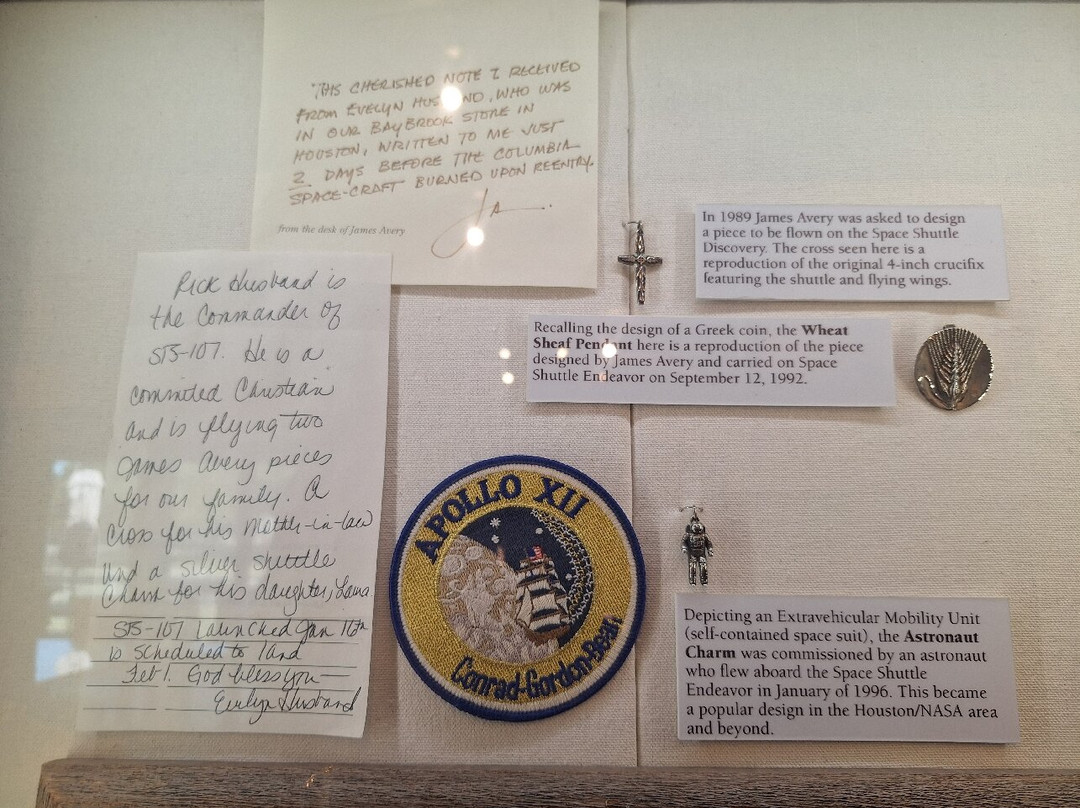 "THIS CHERISHED NOTE I RECEIVED
FROM EVELYN HUSBAND, WHO WAS
IN OUR BAYBROOK STORE IN
HOUSTON, WRITTEN TO ME JUST
2 DAYS BEFORE THE COLUMBIA
SPACE-CRAFT BURNED UPON REENTRY.
JA
from the desk of James Avery
Rick Husband is
the Commander of
STS-107. He is a
commited Christian
and is flying two
James Avery pieces
for our family. A
Cross for his Mother-in-law
and a silver shuttle
Charm for his daughter, Laura.
STS-107 launched Jan 16th
is scheduled to land
Feb 1. God bless you—
Evelyn Husband
In 1989 James Avery was asked to design
a piece to be flown on the Space Shuttle
Discovery. The cross seen here is a
reproduction of the original 4-inch crucifix
featuring the shuttle and flying wings.
Recalling the design of a Greek coin, the Wheat
Sheaf Pendant here is a reproduction of the piece
designed by James Avery and carried on Space
Shuttle Endeavor on September 12, 1992.
APOLLO XII
Conrad-Gordon-Bean
Depicting an Extravehicular Mobility Unit
(self-contained space suit), the Astronaut
Charm was commissioned by an astronaut
who flew aboard the Space Shuttle
Endeavor in January of 1996. This became
a popular design in the Houston/NASA area
and beyond.